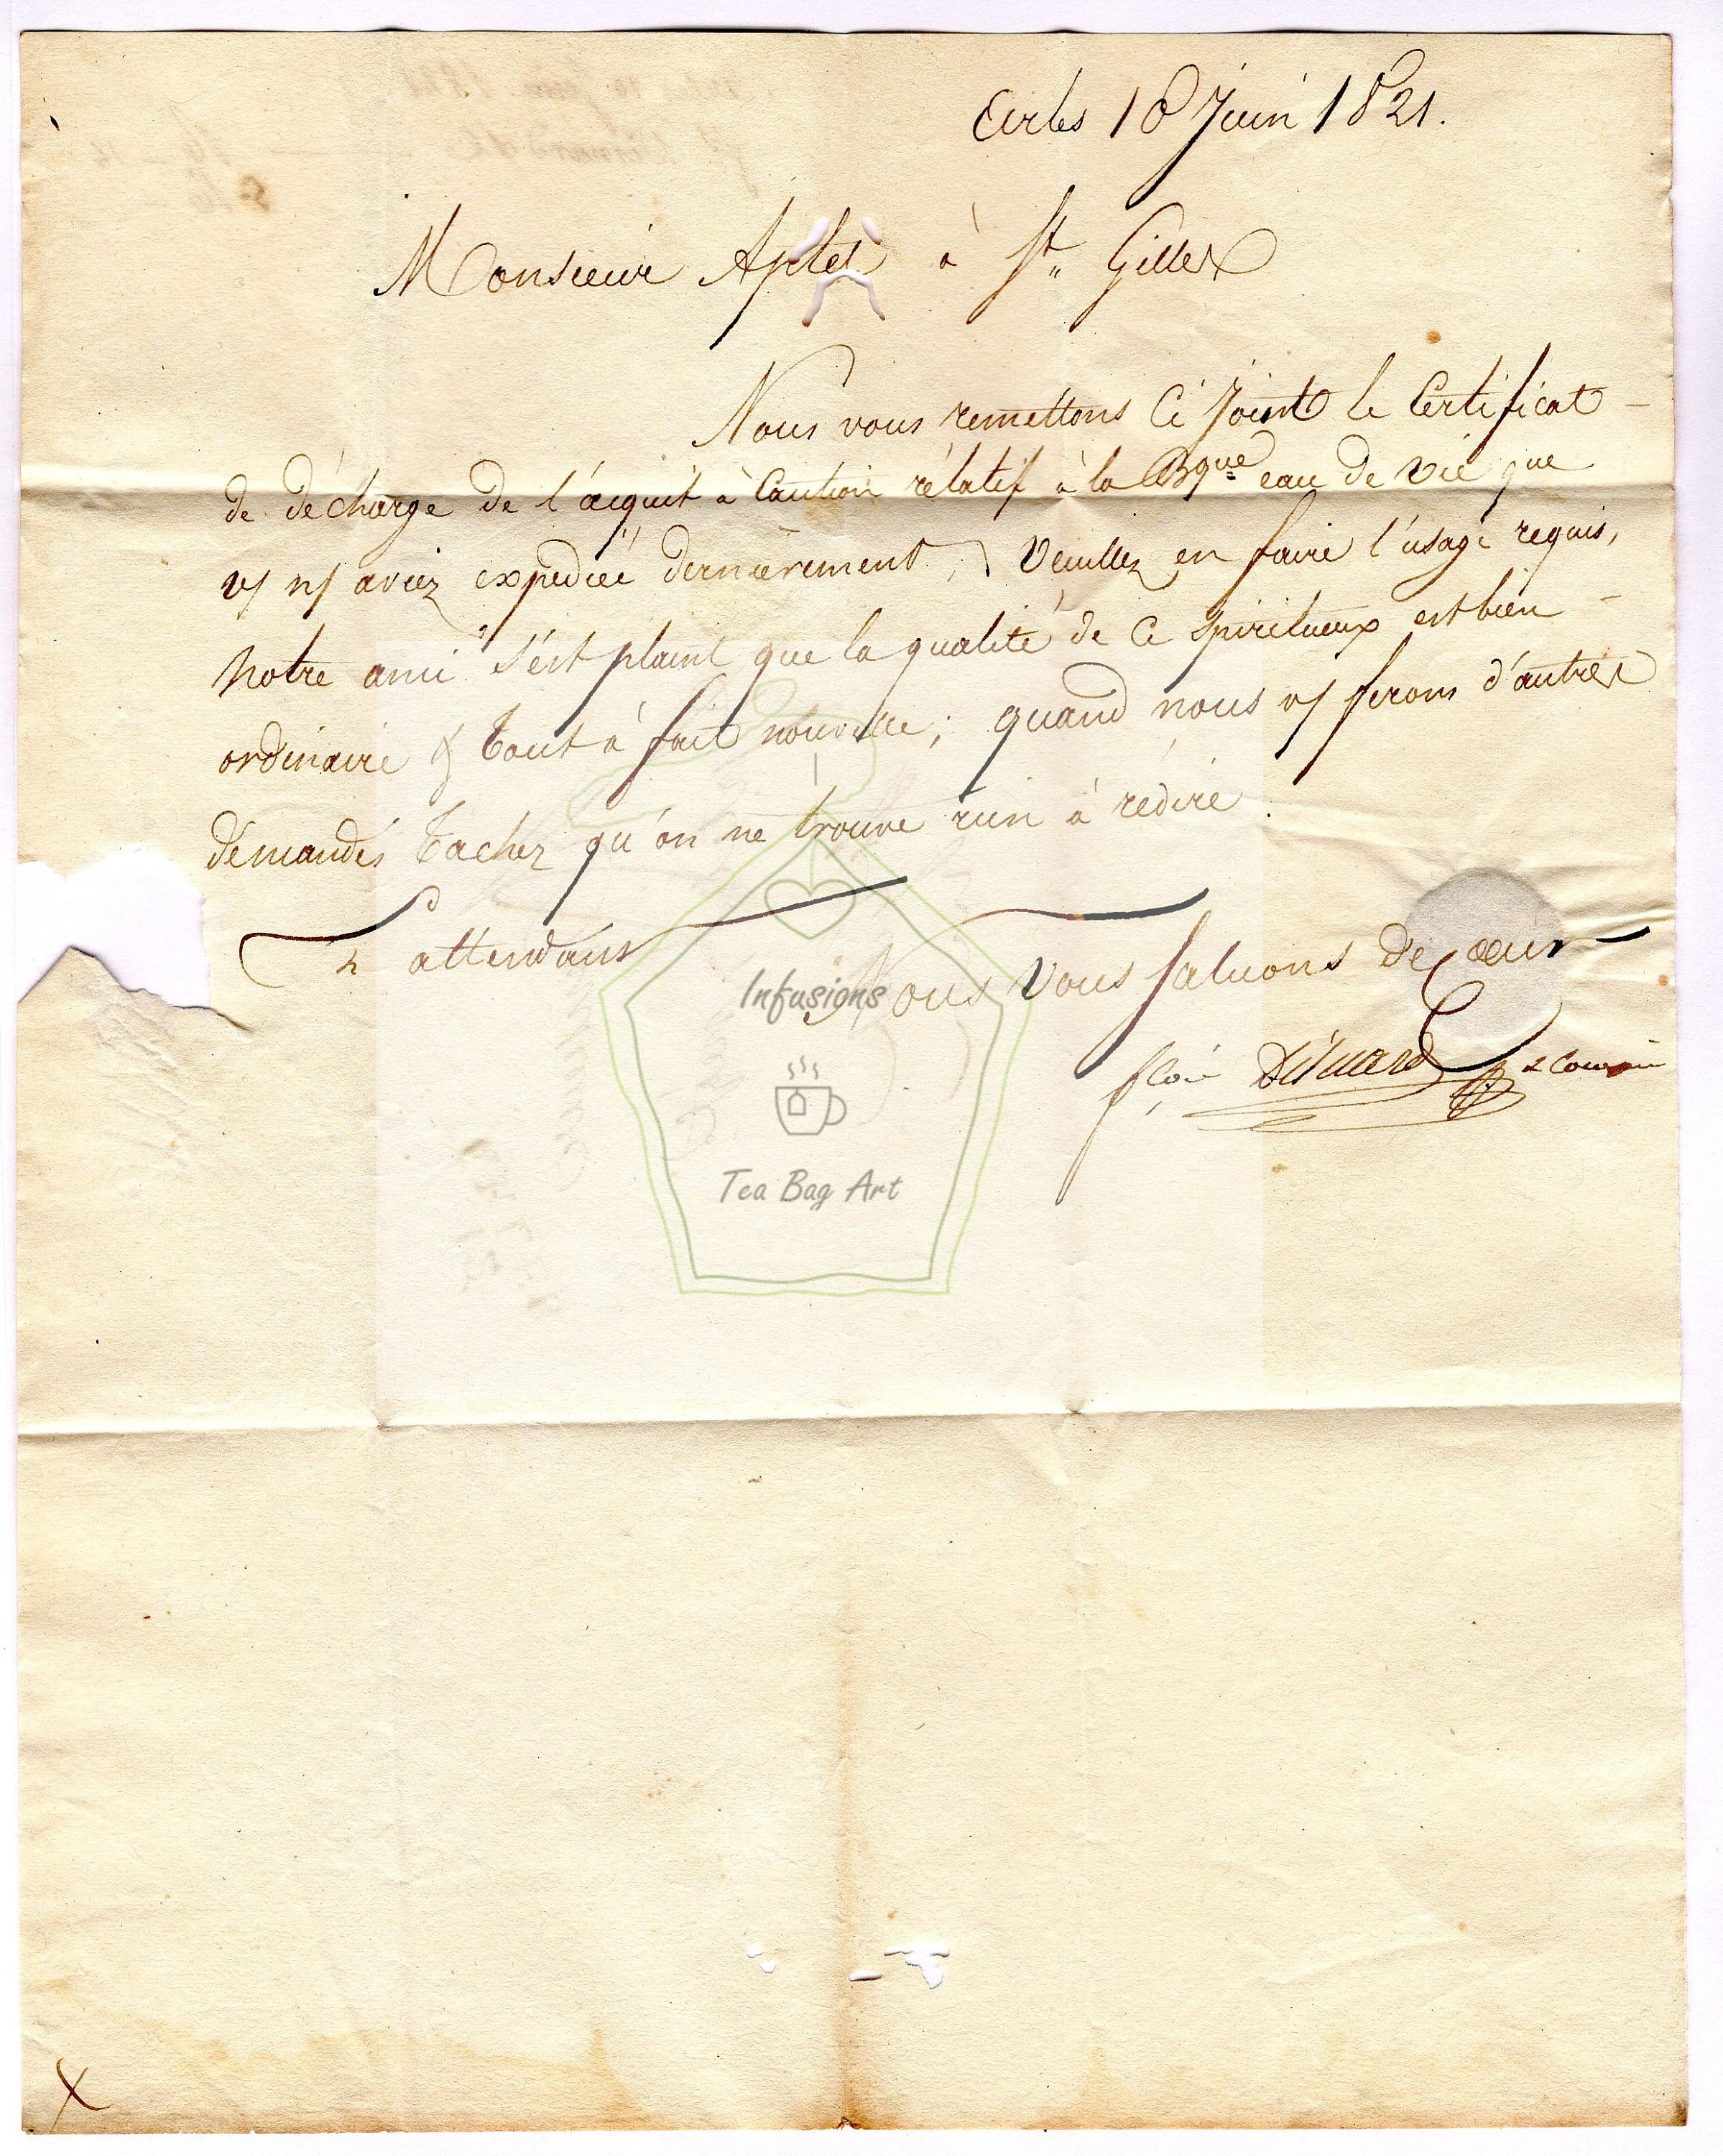 Arles 18 Juin 1821.
Monsieur à St. Gilles
Nous vous remettons Ci Joint le Certificat
de décharge de l'acquit à Caution rélatif à la Bque eau de vie que
v/ n/ aviez expediée dernièrement, Veuillez en faire l'usage requis,
Notre ami s'est plaint que la qualité de ce spiritueux est bien
ordinaire & tout à fait nouvelle; quand nous v/ ferons d'autres
demandes tachez qu'on ne trouve rien à rédire.
attendant
Nous Vous saluons de Cœur
Infusions
Tea Bag Art
X